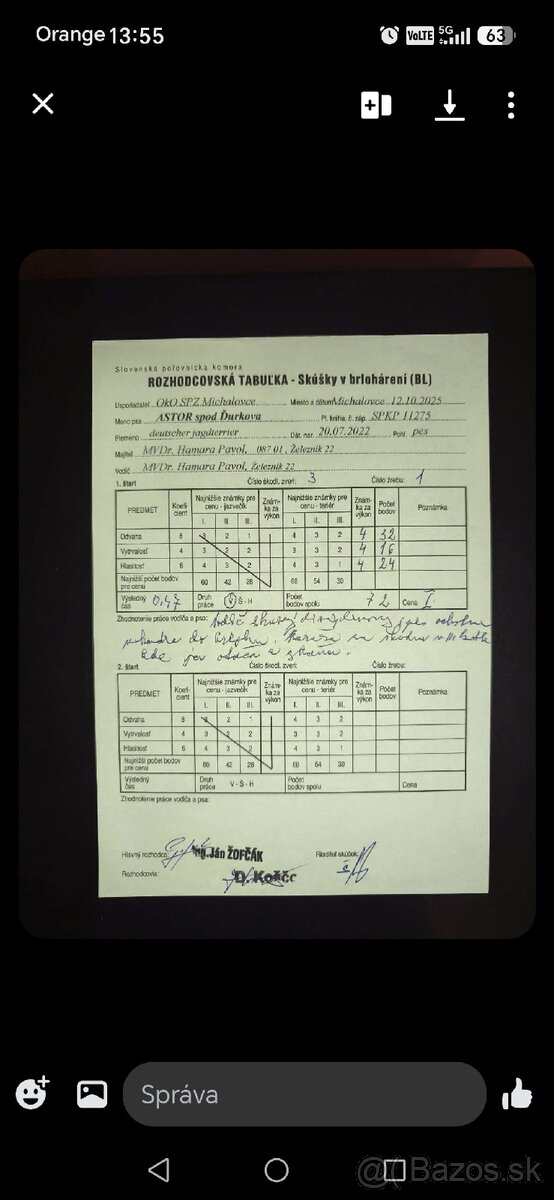 Orange 13:55
VoLTE 5G 63
Slovenská poľovnícka komora
ROZHODCOVSKÁ TABUĽKA - Skúšky v brlohárení (BL)
Usporiadateľ OkO SPZ Michalovce Miesto a dátum Michalovce 12.10.2025
Meno psa ASTOR spod Ďurkova Pl. kniha, č. záp. SPKP 11275
Plemeno deutscher jagdterrier Dát. nar. 20.07.2022 Pohl. pes
Majiteľ MVDr. Hamara Pavol, 087 01, Železník 22
Vodič MVDr. Hamara Pavol, Železník 22
1. štart Číslo škodl. zveri: 3 Číslo žrebu: 1
PREDMET Koeficient Najnižšie známky pre cenu - jazvečík Známka za výkon Najnižšie známky pre cenu - teriér Známka za výkon Počet bodov Poznámka
I. II. III. I. II. III.
Odvaha 8 3 2 1 4 3 2 4 32
Vytrvalosť 4 3 2 2 3 3 2 4 16
Hlasitosť 6 4 3 2 4 3 1 4 24
Najnižší počet bodov pre cenu 60 42 28 68 54 30
Výsledný čas 0,47 Druh práce V - Š - H Počet bodov spolu 72 Cena I.
Zhodnotenie práce vodiča a psa: Vodič skúsený pes ochotne
do
kde
2. štart Číslo škodl. zveri: Číslo žrebu:
PREDMET Koeficient Najnižšie známky pre cenu - jazvečík Známka za výkon Najnižšie známky pre cenu - teriér Známka za výkon Počet bodov Poznámka
I. II. III. I. II. III.
Odvaha 8 3 2 1 4 3 2
Vytrvalosť 4 3 2 2 4 3 2
Hlasitosť 6 4 3 2 4 3 1
Najnižší počet bodov pre cenu 60 42 28 68 54 30
Výsledný čas Druh práce V - Š - H Počet bodov spolu Cena
Zhodnotenie práce vodiča a psa:
Hlavný rozhodca: Ing. Ján ŽOFČÁK Riaditeľ skúšok:
Rozhodcovia: D. Koščo
Správa
Bazos.sk